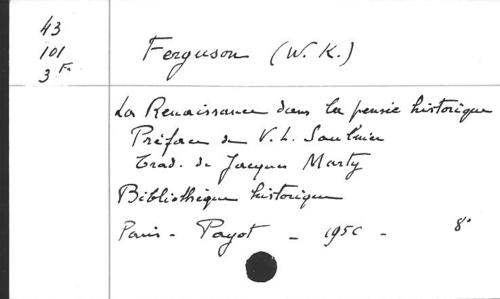 43
101
3 Fa
Ferguson (W. K.)
La Renaissance dans la pensée historique
Préface de V. L. Saulnier
Trad. de Jacques Marty
Bibliothèque historique
Paris - Payot - 1950 - 8°